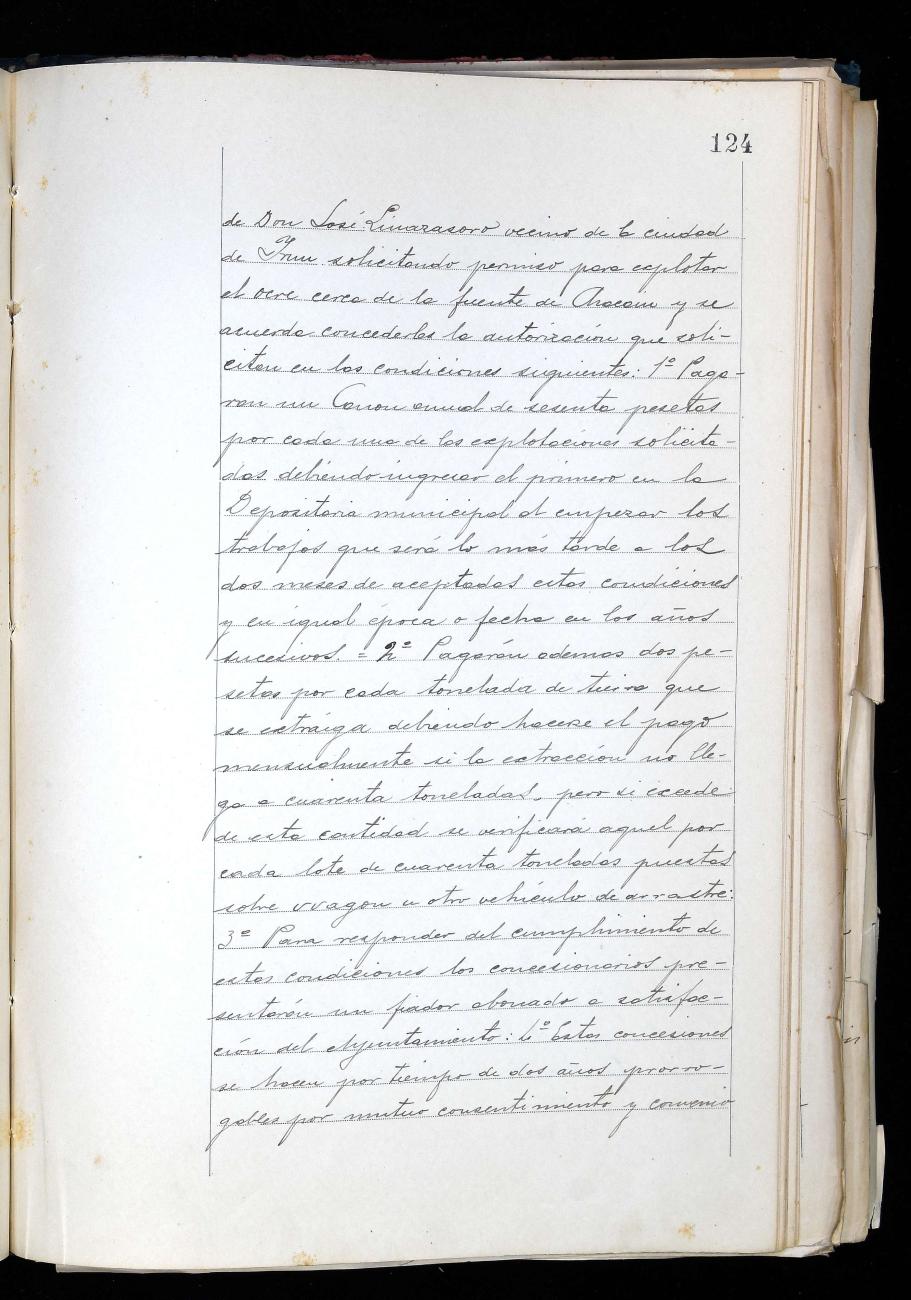 124
de Don José Linazasoro vecino de la ciudad
de Irun solicitando permiso para explotar
el ocre cerca de la fuente de y se
acuerda concederles la autorización que soli-
citan en las condiciones siguientes: 1ª Paga-
ran un Canon anual de sesenta pesetas
por cada una de las explotaciones solicita-
das debiendo ingresar el primero en la
Depositaria municipal al empezar los
trabajos que será lo más tarde a los
dos meses de aceptadas estas condiciones
y en igual época o fecha en los años
sucesivos. = 2ª Pagarán ademas dos pe-
setas por cada tonelada de tierra que
se extraiga debiendo hacerse el pago
mensualmente si la extracción no lle-
ga a cuarenta toneladas, pero si excede
de esta cantidad se verificará aquel por
cada lote de cuarenta toneladas puestas
sobre wagon u otro vehículo de arrastre:
3ª Para responder del cumplimiento de
estas condiciones los concesionarios pre-
sentarán un fiador abonado a satisfac-
ción del Ayuntamiento: 4ª Estas concesiones
se hacen por tiempo de dos años prorro-
gables por mutuo consentimiento y convenio